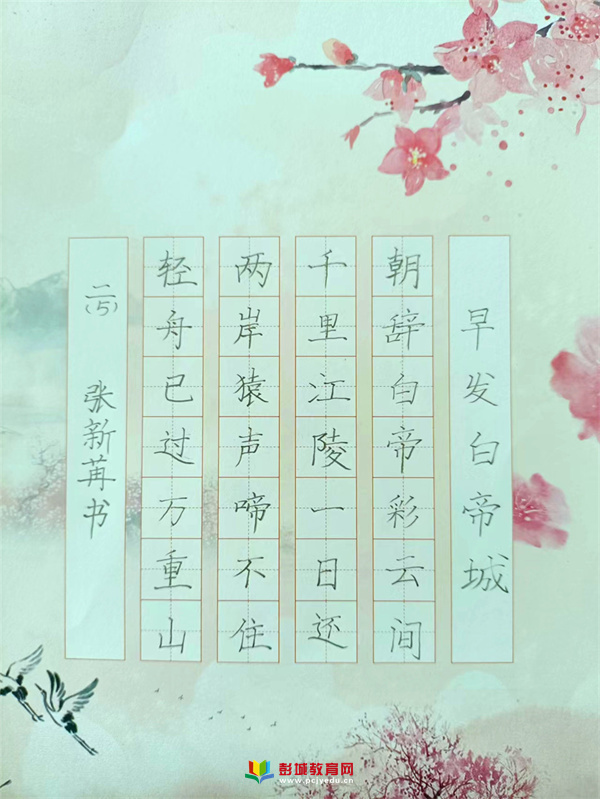 早发白帝城
朝辞白帝彩云间
千里江陵一日还
两岸猿声啼不住
轻舟已过万重山
二(5) 张新苒书
彭城教育网
www.pcjyedu.cn